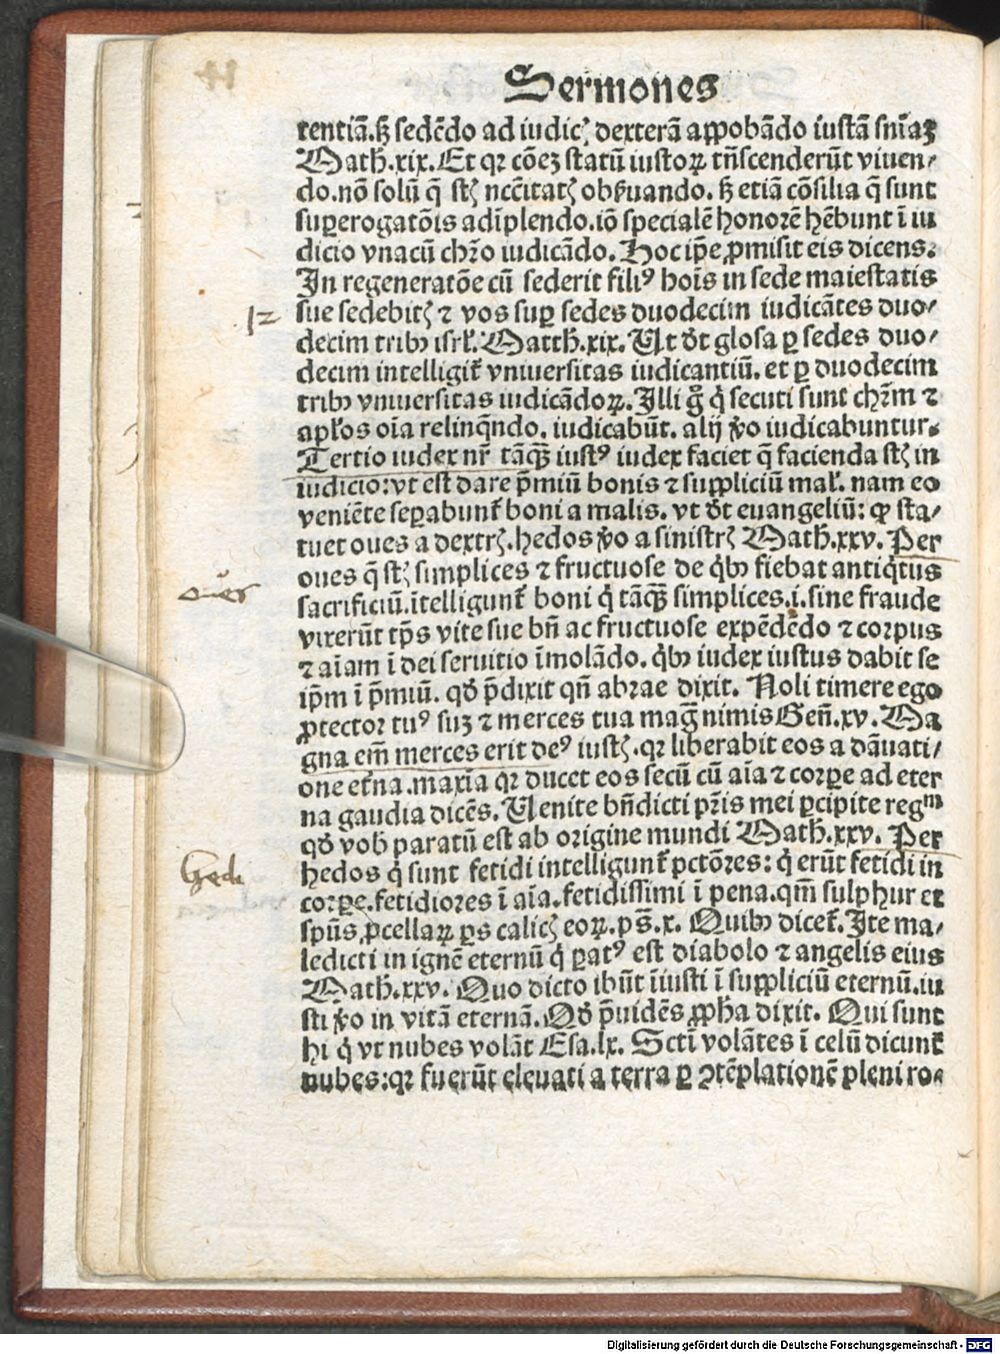 Sermones
tentiā.sꝫ sedēdo ad iudicꝭ dexterā aꝓpobādo iustā sn̄iaꝫ
Math̄.xix.Et qꝛ cōeꝫ statū iustoꝝ trn̄scenderūt viuen/
do.nō solū q̄ stꝭ nc̄citatꝭ obẜuando.sꝫ etiā cōsilia q̄ sunt
suꝑerogatōis adīplendo.iō specialē honorē hēbunt ī iu
dicio vnacū chr̄o iudicādo.Hoc ip̄e ꝓmisit eis dicens.
In regeneratōe cū sederit filiꝰ hoīs in sede maiestatis
sue sedebitꝭ ⁊ vos suꝑ sedes duodecim iudicātes duo/
12
decim tribꝰ isrl̓.Matth̄.xix.Ut dt̄ glosa ꝑ sedes duo/
decim intelligit̄ vniuersitas iudicantiū.et ꝑ duodecim
tribꝰ vniuersitas iudicādoꝝ.Illi gͦ qͥ secuti sunt chr̄m ⁊
apl̓os oīa relinq̄ndo.iudicabūt.alij v̓o iudicabuntur.
Tertio iudex nr̄ tāq̄ꝫ iustꝰ iudex faciet q̄ facienda stꝭ in
iudicio:vt est dare p̄miū bonis ⁊ suppliciū mal̓.nam eo
veniēte seꝑabunt̄ boni a malis.vt dt̄ euangeliū:ꝙ sta/
tuet oues a dextrꝭ.hedos v̓o a sinistrꝭ Math̄.xxv.Per
oues q̄ stꝭ simplices ⁊ fructuose de qͥbꝰ fiebat antiqͥtus
oues
sacrificiū.ītelligunt̄ boni qͥ tāq̄ꝫ simplices.i.sine fraude
vixerūt tp̄s vite sue bn̄ ac fructuose expēdēdo ⁊ corpus
⁊ aīam ī dei seruitio īmolādo.qͥbꝰ iudex iustus dabit se
ip̄m ī p̄miū.qd̄ p̄dixit qn̄ abrae dixit.Noli timere ego
ꝓtector tuꝰ suꝫ ⁊ merces tua maḡ nimis Gen̄.xv.Ma
gna em̄ merces erit deꝰ iustꝭ.qꝛ liberabit eos a dāuati/
one et̓na.maxīa qꝛ ducet eos secū cū aīa ⁊ corꝑe ad eter
na gaudia dicēs.Uenite bn̄dicti pr̄is mei ꝑcipite regᵐ
qd̄ vob̄ paratū est ab origine mundi Math̄.xxv.Per
hedos qͥ sunt fetidi intelligunt̄ pctōres:qͥ erūt fetidi in
Hedi
corꝑe.fetidiores ī aīa.fetidissimi ī pena.qm̄ sulphur et
spūs ꝓcellaꝝ ꝑs calicꝭ eoꝝ.ps̄.x.Quibꝰ dicet̄.Ite ma/
ledicti in ignē eternū qͥ ꝑatꝰ est diabolo ⁊ angelis eius
Math̄.xxv.Quo dicto ibūt īiusti ī suppliciū eternū.iu
sti v̓o in vitā eternā.Qd̄ p̄uidēs ꝓpha dixit.Qui sunt
hi qͥ vt nubes volāt Esa.lx.Sctī volātes ī celū dicunt̄
nubes:qꝛ fuerūt eleuati a terra ꝑ ꝯtēplationē pleni ro-
Digitalisierung gefördert durch die Deutsche Forschungsgemeinschaft - DFG